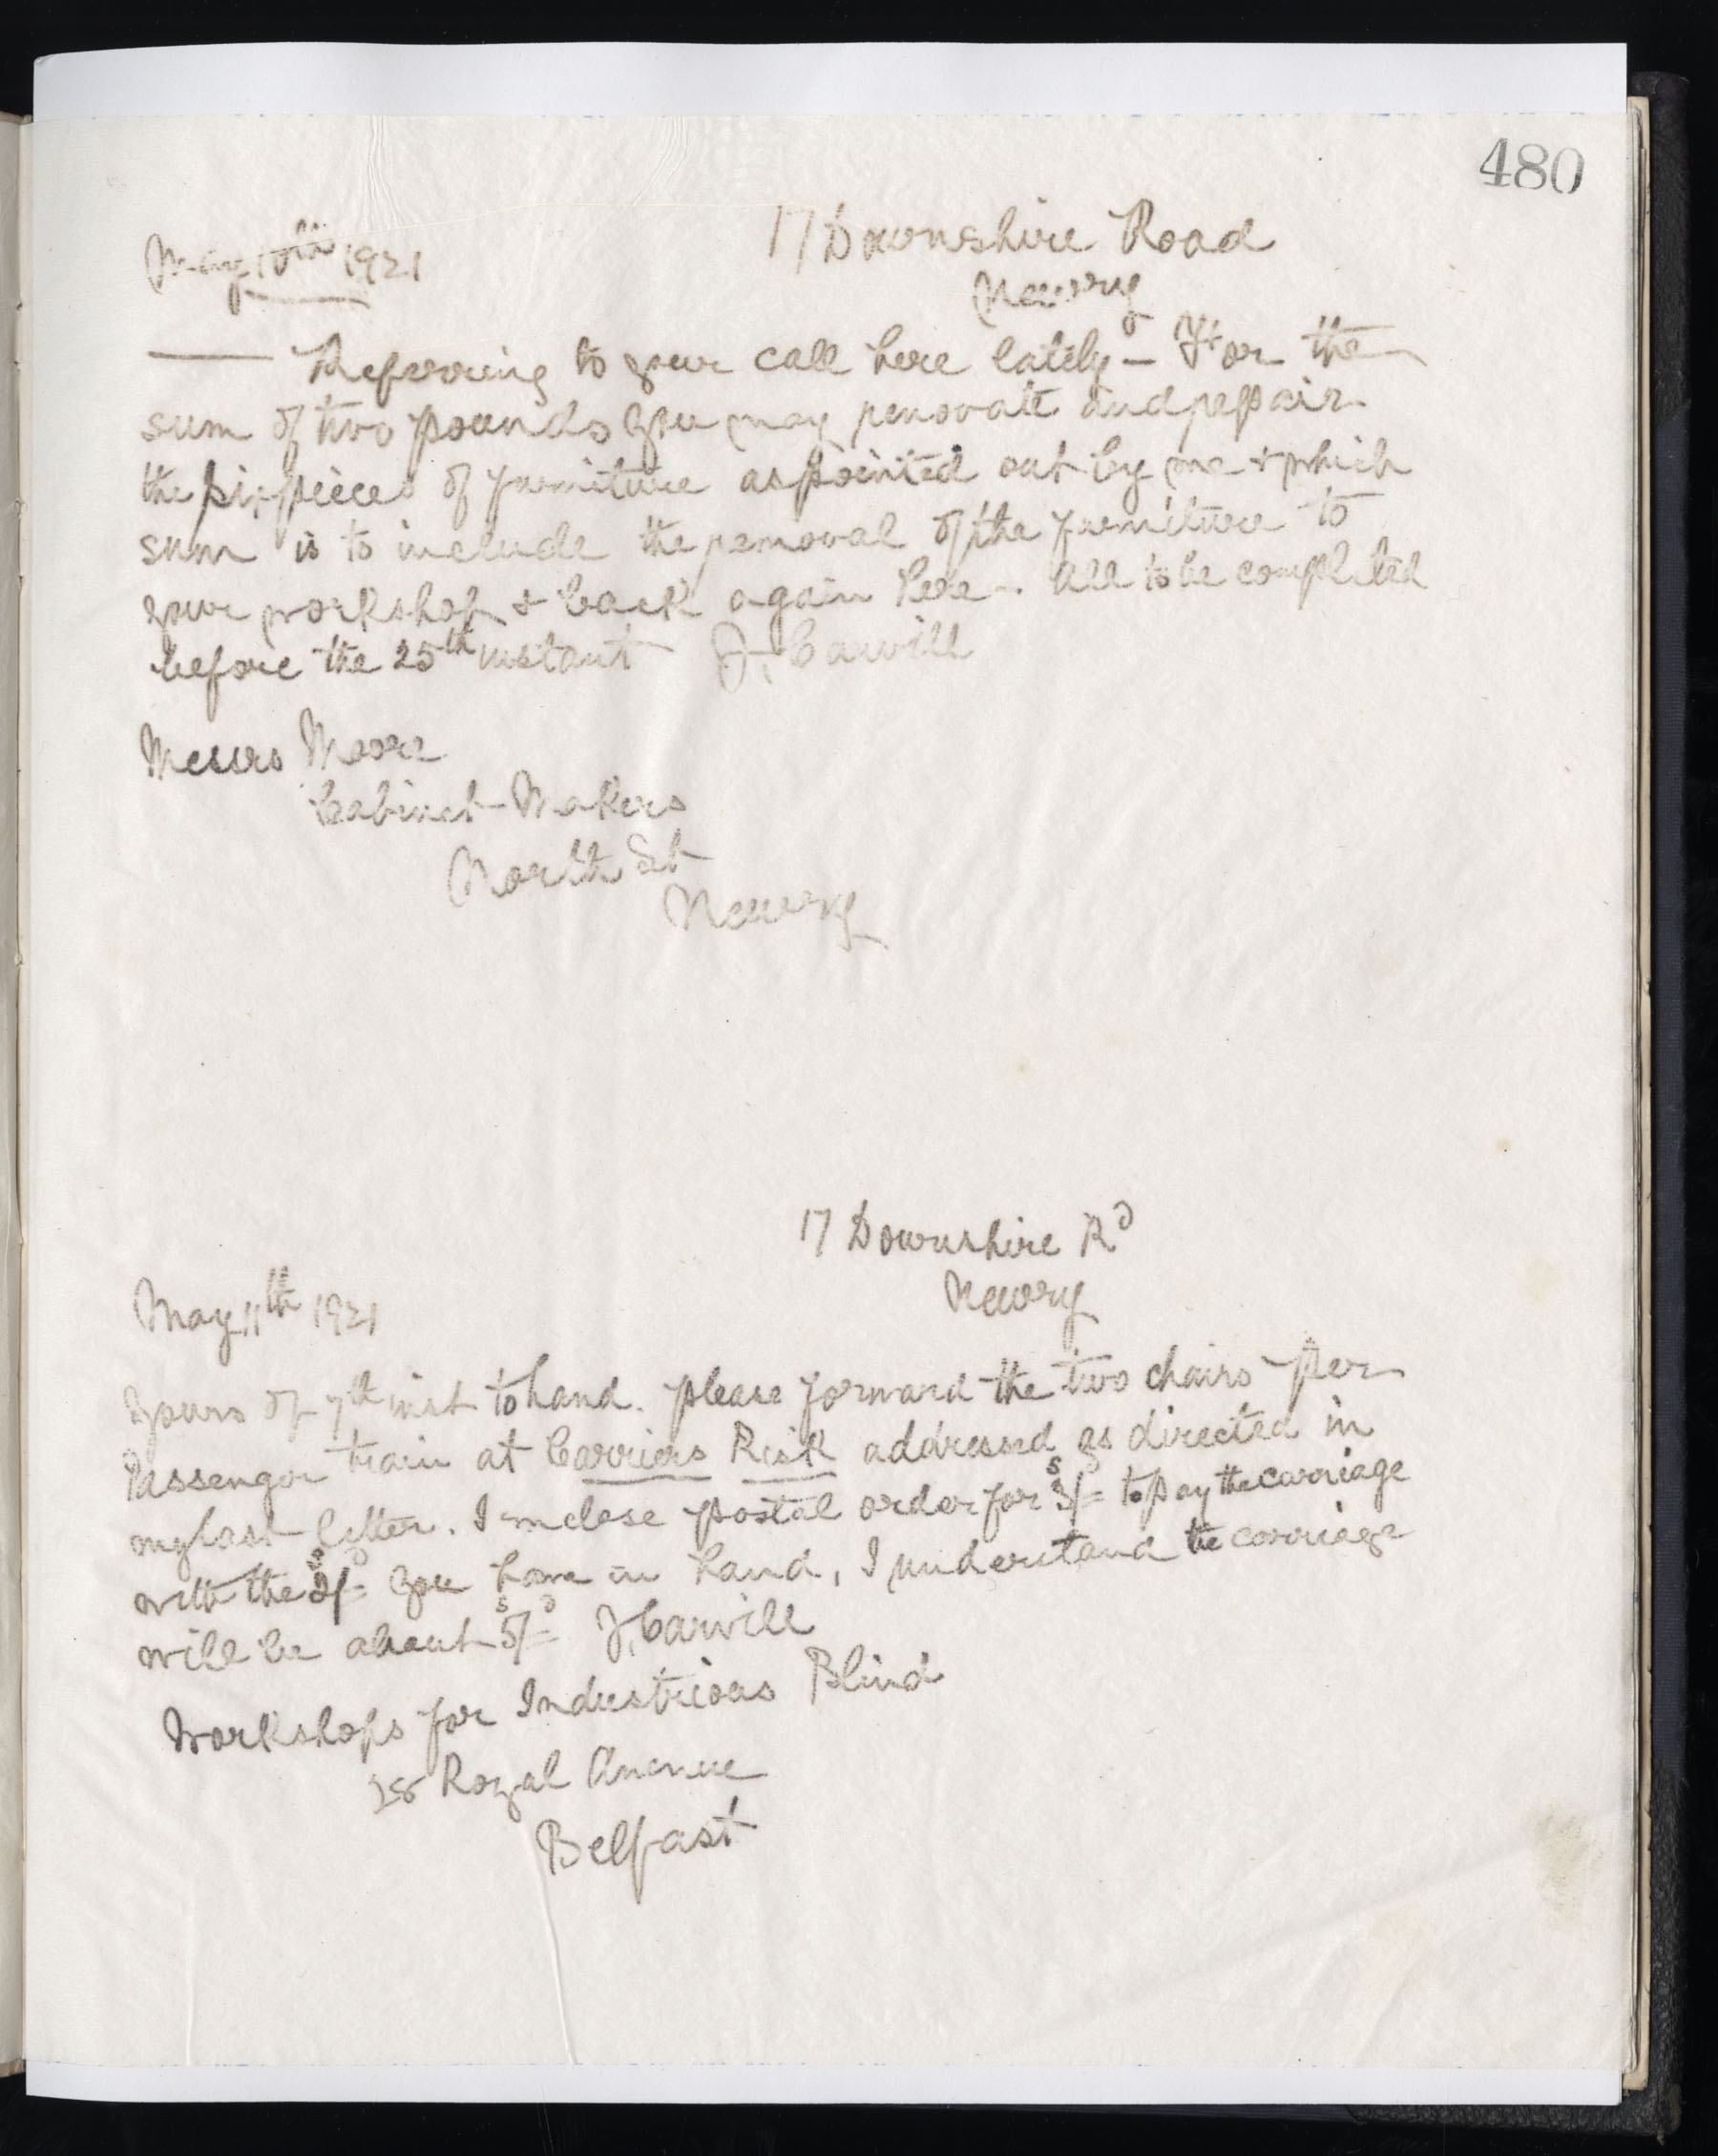 480
17 Downshire Road
May 10th 1921
Newry
Referring to your call here lately — For the
sum of two pounds you may renovate and repair
the six pieces of furniture as pointed out by me & which
sum is to include the removal of the furniture to
your workshop & back again here - All to be completed
before the 25th instant J. Carvill
Messrs Moore
Cabinet-Makers
North St
Newry
17 Downshire Rd
Newry
May 11th 1921
Yours of 7th inst to hand. please forward the two chairs per
Passenger train at Carriers Risk addressed as directed in
my last letter. I inclose postal order for 3s/= to pay the carriage
with the 2s/=d you have in hand, I understand the carriage
will be about 5s/=d J. Carvill
Workshops for Industrious Blind
28 Royal Avenue
Belfast